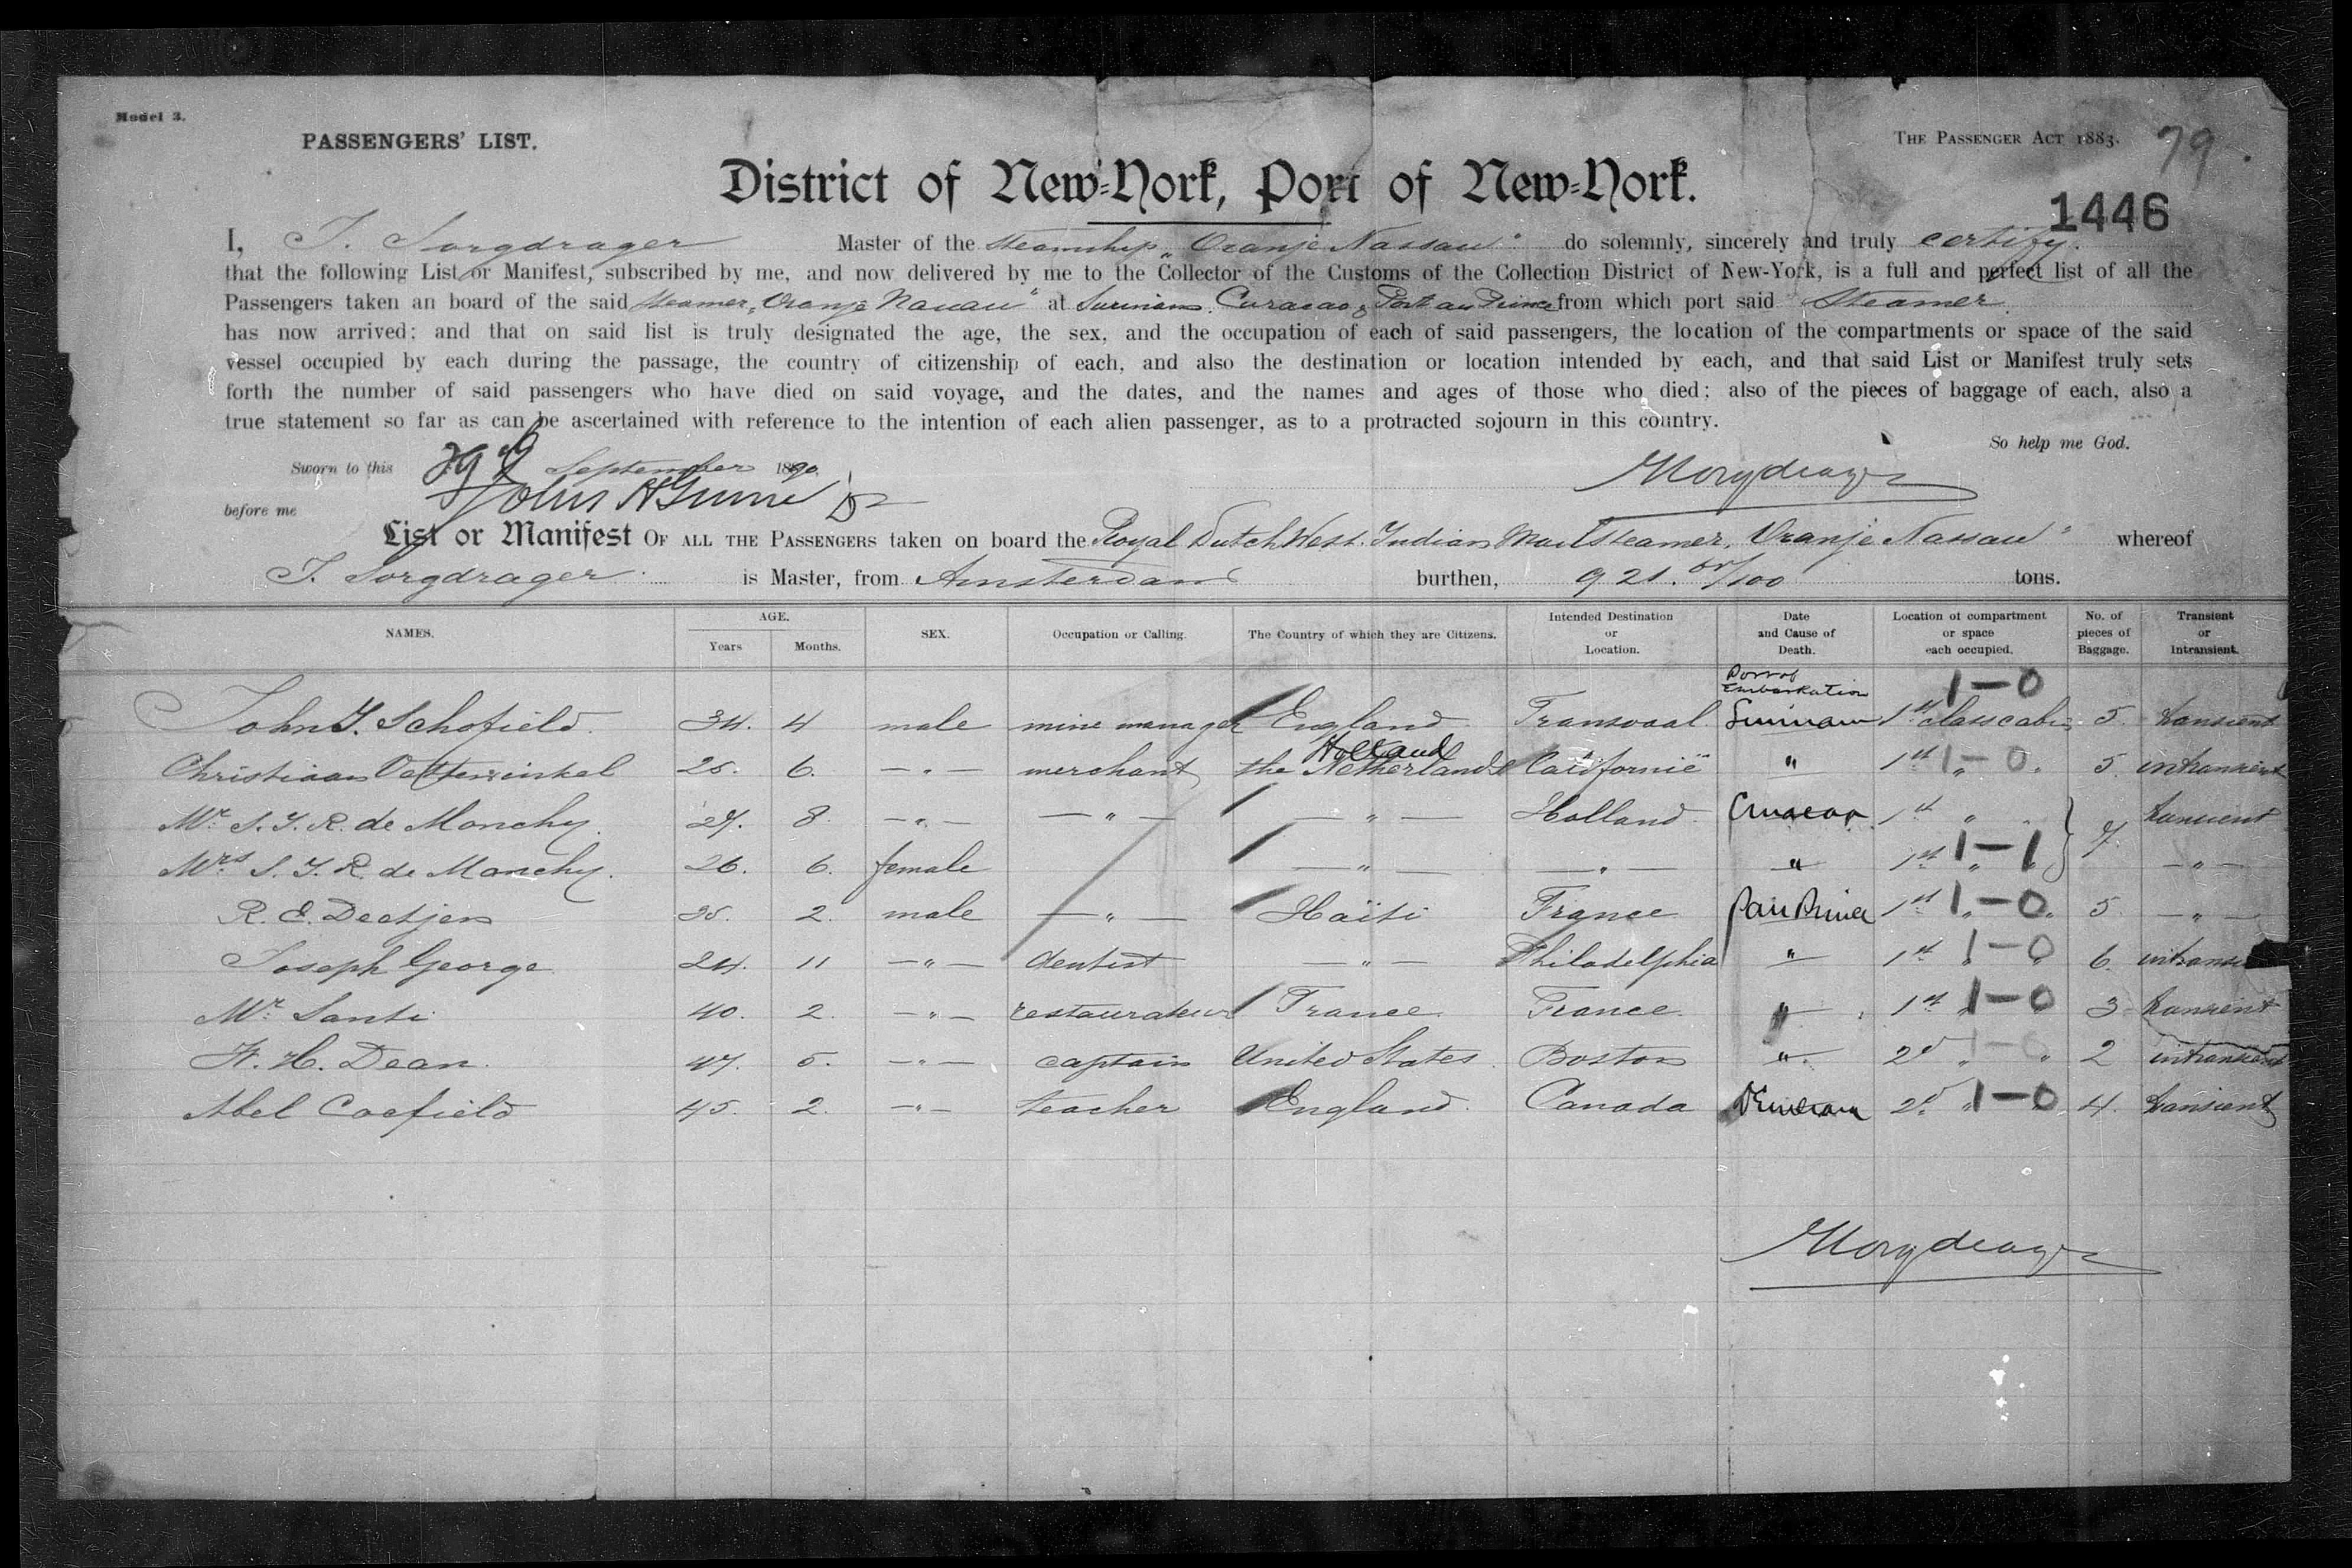 Model 3.
PASSENGERS' LIST.
THE PASSENGER ACT 1883.
79
District of New-York, Port of New-York.
1446
I, T. Sorgdrager Master of the Steamship „Oranje Nassau" do solemnly, sincerely and truly certify
that the following List or Manifest, subscribed by me, and now delivered by me to the Collector of the Customs of the Collection District of New-York, is a full and perfect list of all the
Passengers taken an board of the said steamer „Oranje Nassau" at Surinam. Curacao & Port au Prince from which port said Steamer
has now arrived; and that on said list is truly designated the age, the sex, and the occupation of each of said passengers, the location of the compartments or space of the said
vessel occupied by each during the passage, the country of citizenship of each, and also the destination or location intended by each, and that said List or Manifest truly sets
forth the number of said passengers who have died on said voyage, and the dates, and the names and ages of those who died; also of the pieces of baggage of each, also a
true statement so far as can be ascertained with reference to the intention of each alien passenger, as to a protracted sojourn in this country.
So help me God.
Sworn to this 29 September 1890.
before me John
List or Manifest OF ALL THE PASSENGERS taken on board the Royal Dutch West. Indian Mail Steamer, Oranje Nassau" whereof
T. Sorgdrager is Master, from Amsterdam burthen, 921. /100 tons.
NAMES. AGE. Years Months. SEX. Occupation or Calling. The Country of which they are Citizens. Intended Destination or Location. Date and Cause of Death. Location of compartment or space each occupied. No. of pieces of Baggage. Transient or Intransient.
Port of Embarkation 1-0
John T. Schofield. 34. 4 male mine manager England Transvaal Surinam 1st class cabin 5. transient
Holland
Christiaan 25. 6. — „ — merchant the Netherlands Californië " 1st „ 1-0 „ 5. intransient
Mr. S. J. R. de Monchy. 27. 8. — „ — — „ — — „ — Holland Curacao 1st „ transient
Mrs. S. J. R. de Monchy. 26. 6. female — „ — — „ — " 1st 1-1 „ 7. — „ —
R. E. Deetjen 35. 2. male — „ — Haïti France Pau Prince 1st 1-0 „ 5 — „ —
Joseph George 24. 11 — „ — dentist — „ — Philadelphia " 1st 1-0 6. intransient
Mr. Santi 40. 2. — „ — restaurateur France France " 1st 1-0 3 transient
H. Dean. 47. 5. — „ — captain United States Boston " 2d 1-0 „ 2 intransient
Abel Coefield 45. 2. — „ — teacher England Canada 2d „ 1-0 4. transient